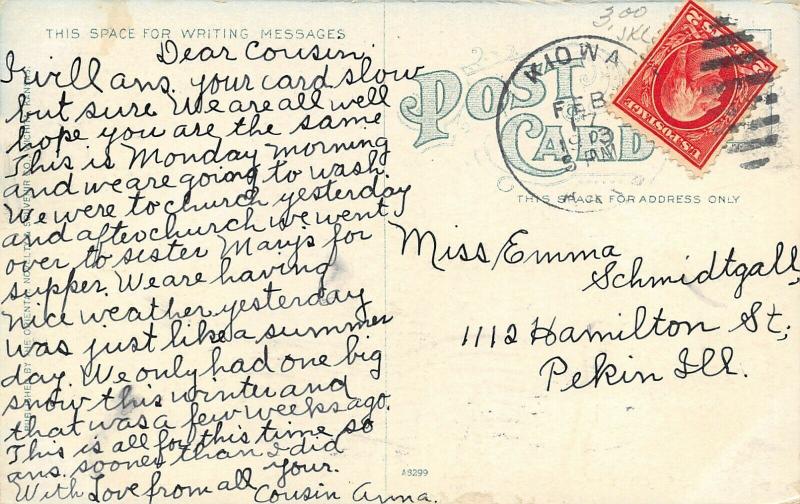 THIS SPACE FOR WRITING MESSAGES
Dear Cousin,
I will ans. your card slow
but sure. We are all well
hope you are the same
This is Monday morning
and we are going to wash.
We were to church yesterday
and after church we went
over to sister Mary's for
supper. We are having
nice weather yesterday
was just like a summer
day. We only had one big
snow this winter and
that was a few weeks ago.
This is all for this time so
ans. sooner than I did
With Love from all your.
Cousin Anna.
3,00
POST
CARD
KIOWA
FEB
17
PM
U.S. POSTAGE
THIS SPACE FOR ADDRESS ONLY
Miss Emma
Schmidtgall,
1112 Hamilton St;
Pekin Ill.
A8299